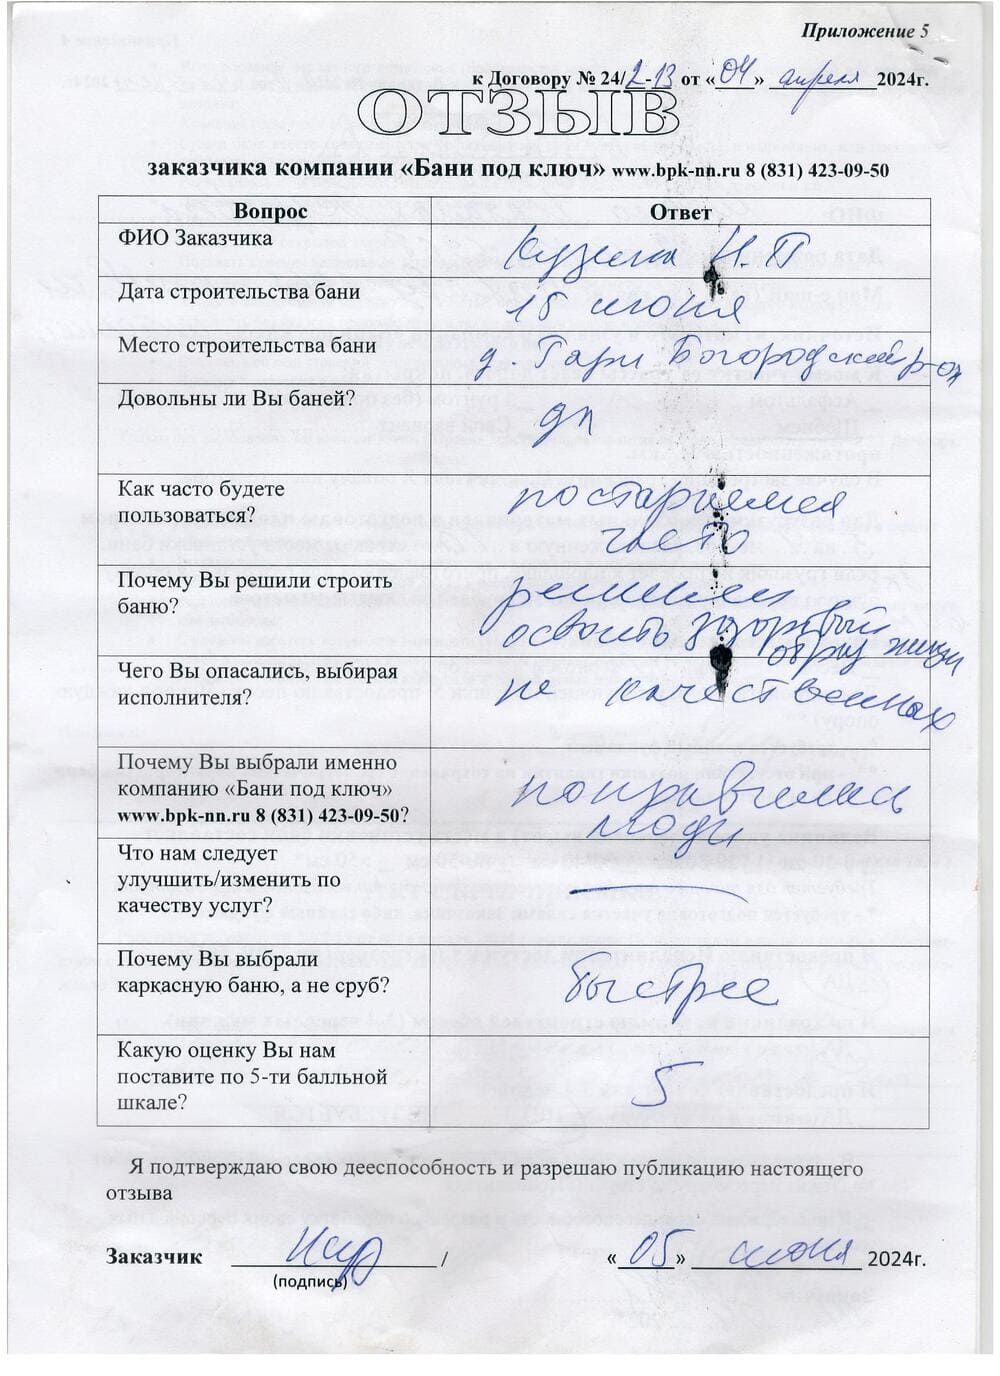 Приложение 5
к Договору № 24/2-13 от «04» апреля 2024г.
ОТЗЫВ
заказчика компании «Бани под ключ» www.bpk-nn.ru 8 (831) 423-09-50
Вопрос Ответ
ФИО Заказчика Кузина Н.П
Дата строительства бани 15 июня
Место строительства бани д. Гари Богородский р-он
Довольны ли Вы баней? да
Как часто будете постараемся
пользоваться? часто
Почему Вы решили строить решили
баню? освоить здоровый
образ жизни
Чего Вы опасались, выбирая не качественных
исполнителя?
Почему Вы выбрали именно
компанию «Бани под ключ» понравились
www.bpk-nn.ru 8 (831) 423-09-50? люди
Что нам следует
улучшить/изменить по
качеству услуг? —
Почему Вы выбрали
каркасную баню, а не сруб? быстрее
Какую оценку Вы нам
поставите по 5-ти балльной 5
шкале?
Я подтверждаю свою дееспособность и разрешаю публикацию настоящего
отзыва
Заказчик / «05» июня 2024г.
(подпись)